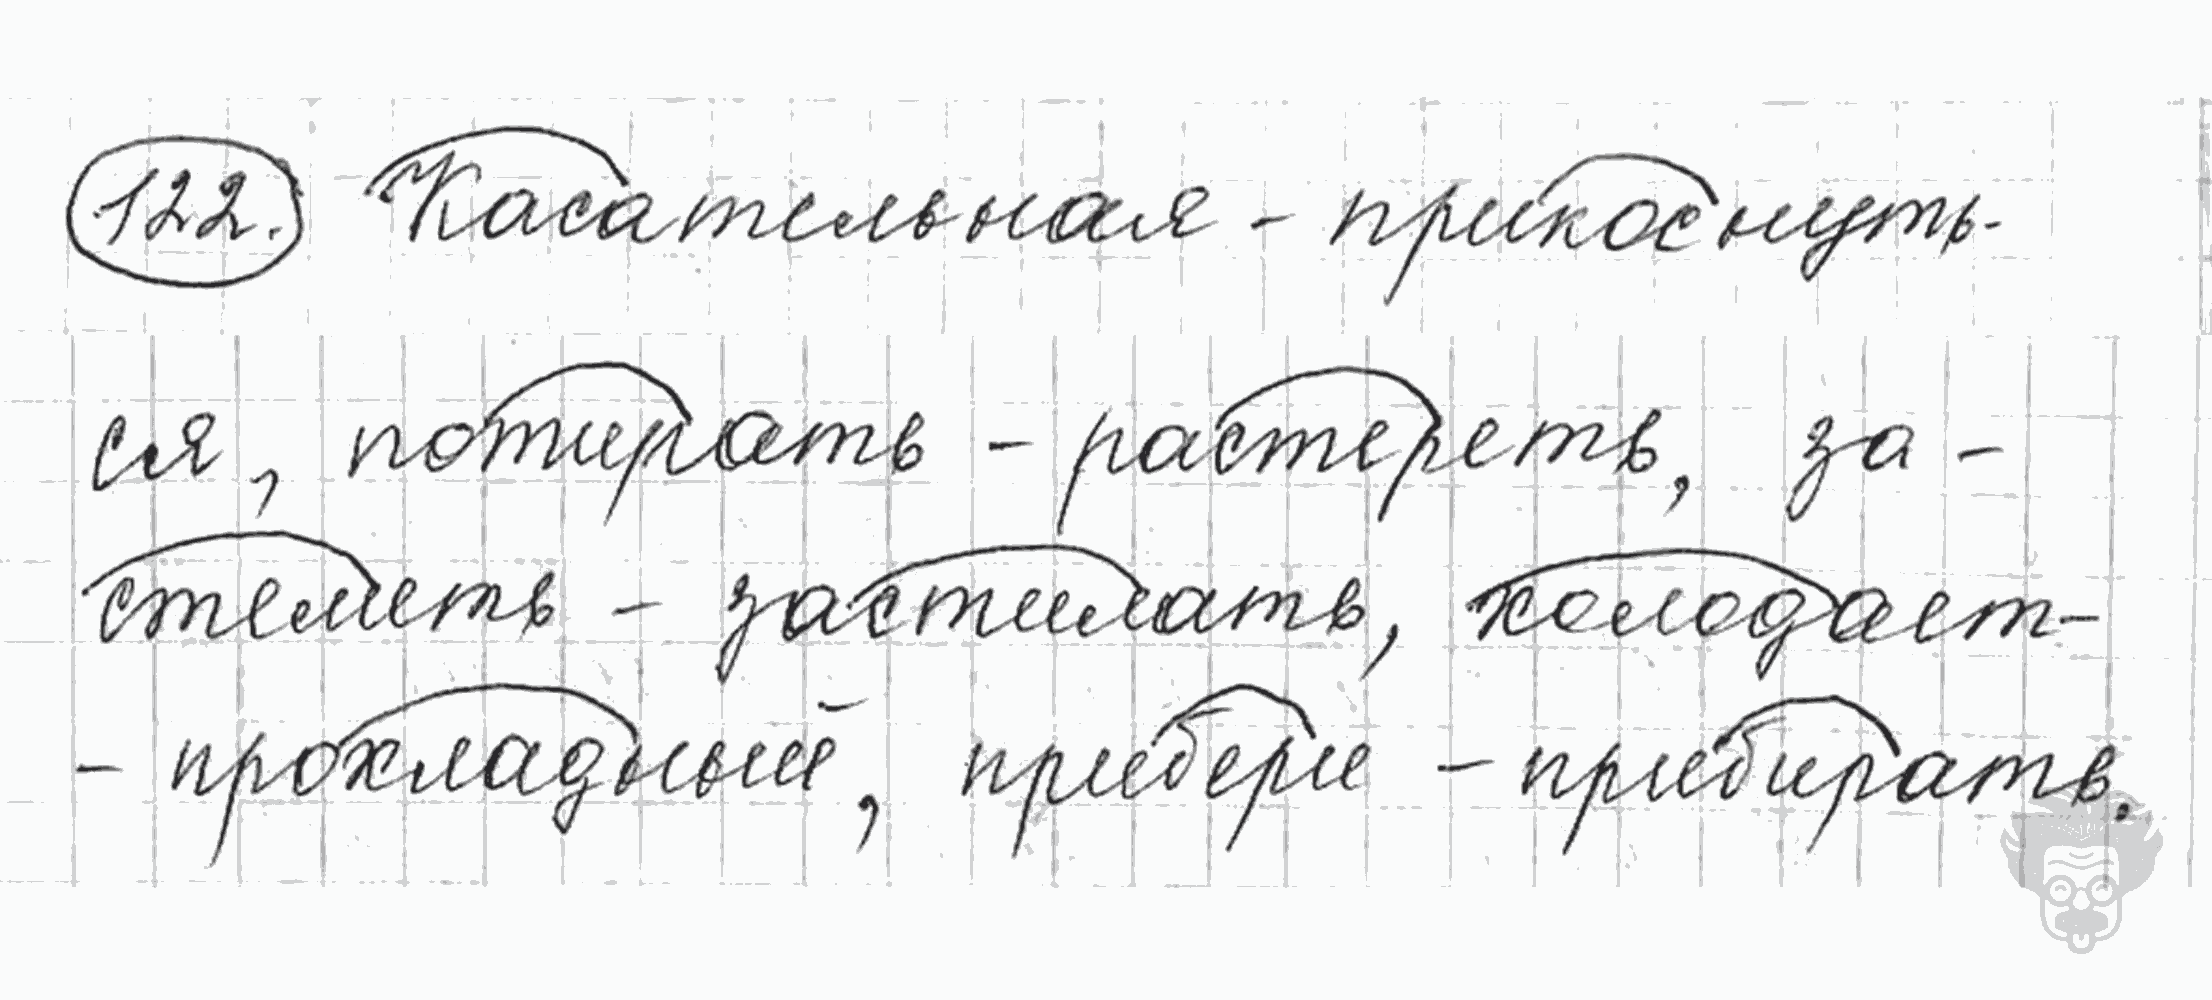 122. Касательная - прикоснуть-
ся, потирать - растереть, за-
стелеть - застилать, холодает-
- прохладный, прибери - прибирать.